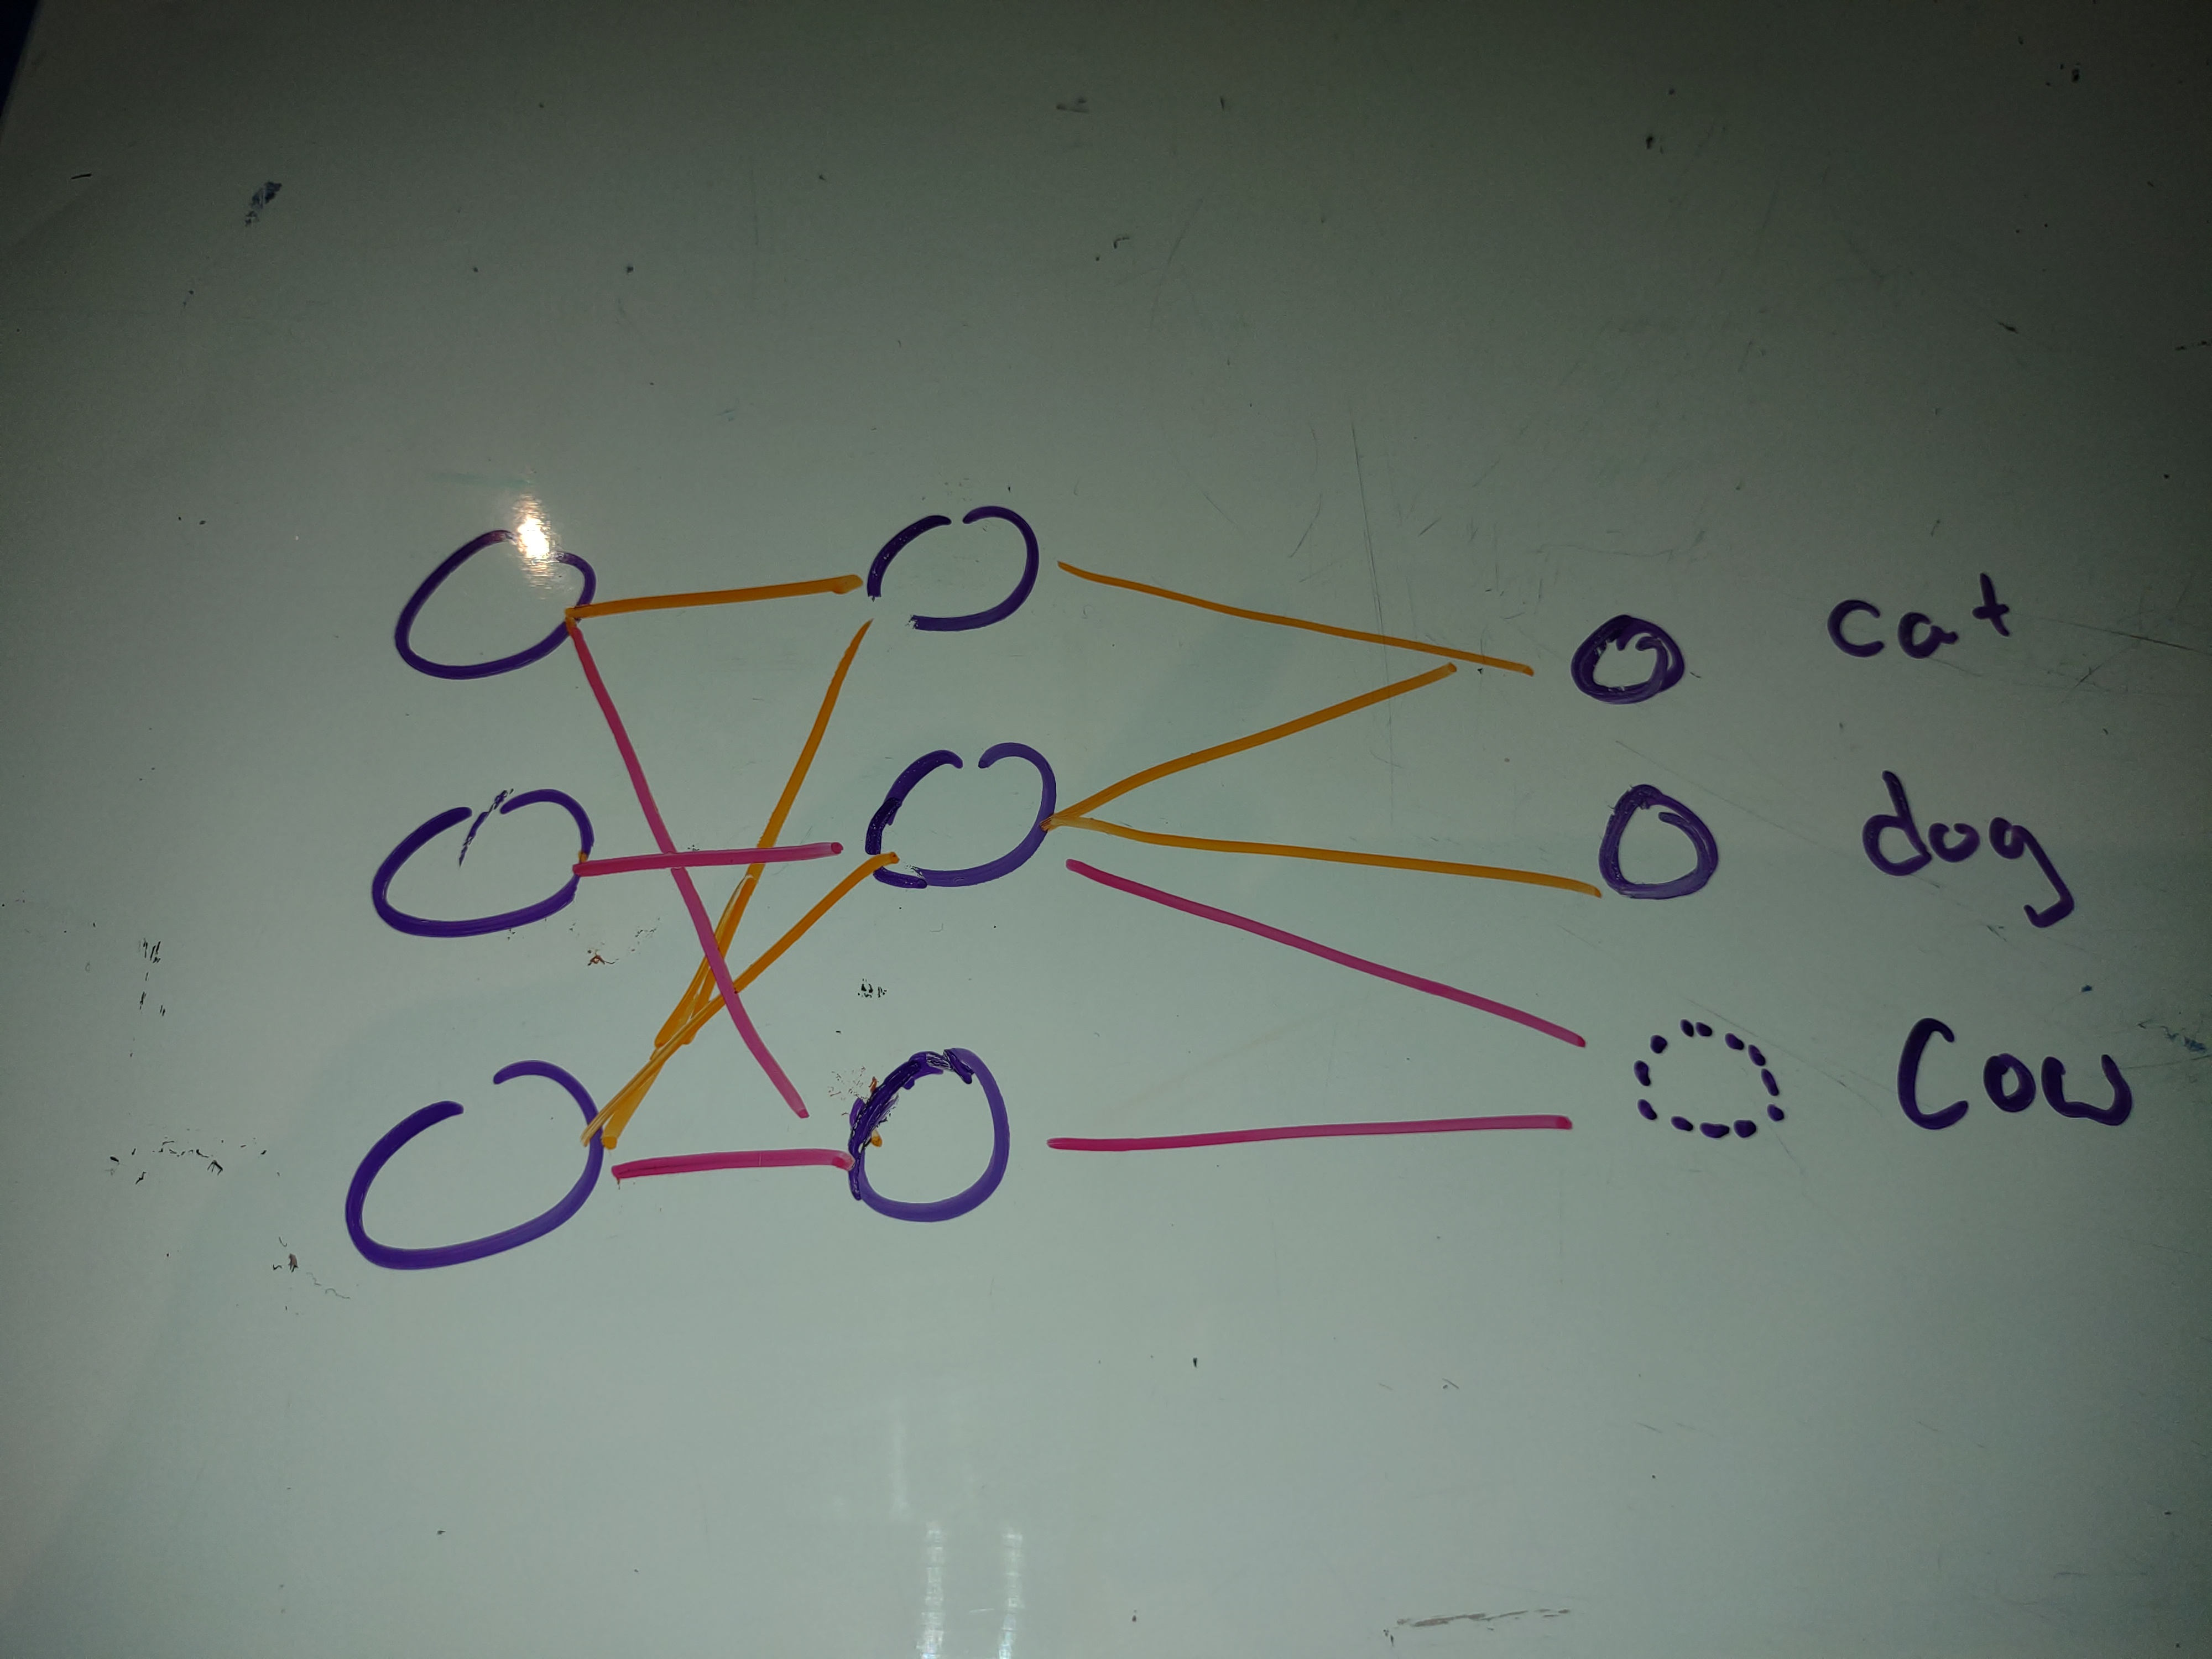 cat
dog
Cow